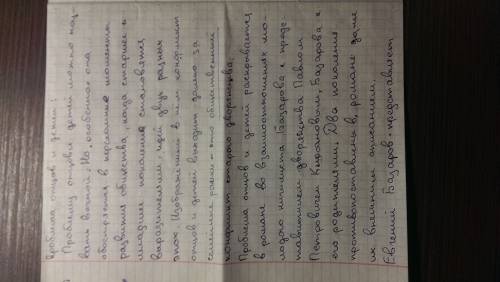 проблема отцов и детей:
Проблему отцов и детей можно наз-
вать вечной. Но особенно она
обостряется в переломные моменты
развития общества, когда старшее и
младшее поколение становятся
выразителями идей двух разных
эпох. Изображённый в нем конфликт
отцов и детей выходит далеко за
семейные рамки - это общественный
конфликт старого дворянства.
Проблема отцов и детей раскрывается
в романе во взаимоотношениях мо-
лодого нигилиста Базарова с предс-
тавителем дворянства Павлом
Петровичем Кирсановым, Базарова с
его родителями. Два поколения
противопоставлены в романе даже
их внешним описанием.
Евгений Базаров представляет